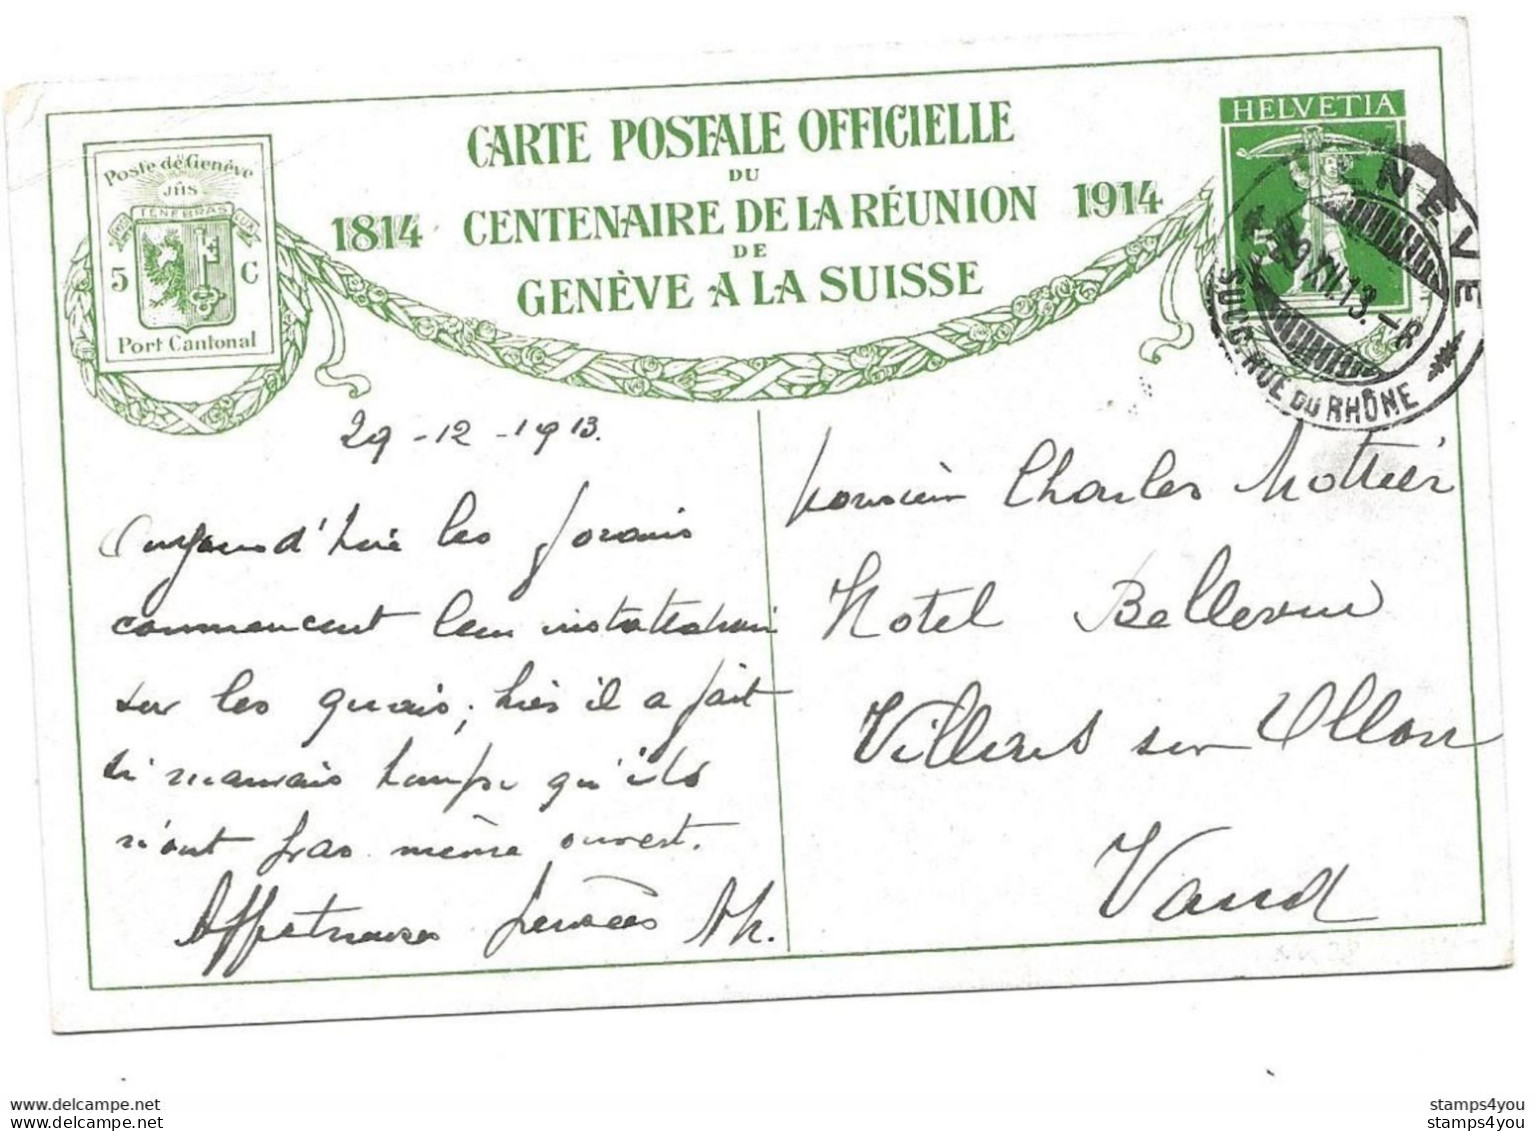 CARTE POSTALE OFFICIELLE
DU
1814 CENTENAIRE DE LA RÉUNION 1914
DE
GENÈVE A LA SUISSE
Poste de Genève
JHS
POST TENEBRAS LUX
5 C
Port Cantonal
HELVETIA
5
GENÈVE
29.XII.13.-8
SUCC. RUE DU RHÔNE
29-12-1913.
Aujourd'hui les forains
commencent leur installation
sur les quais; hier il a fait
si mauvais temps qu'ils
n'ont pas même ouvert.
Affectueuses pensées
Monsieur Charles Mottier
Hotel Bellevue
Villars sur Ollon
Vaud
stamps4you
stamps4you
stamps4you
stamps4you